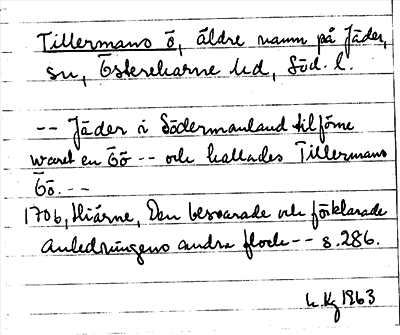 Tillermans ö, äldre namn på Jäder,
sn, Österrekarne hd, Söd. l.
-- Jäder i Södermanland tilförne
waret en Öö -- och kallades Tillermans
Öö. --
1706, Hiärne, Den besvarade och förklarade
Anledningens andra flock -- s. 286.
1963